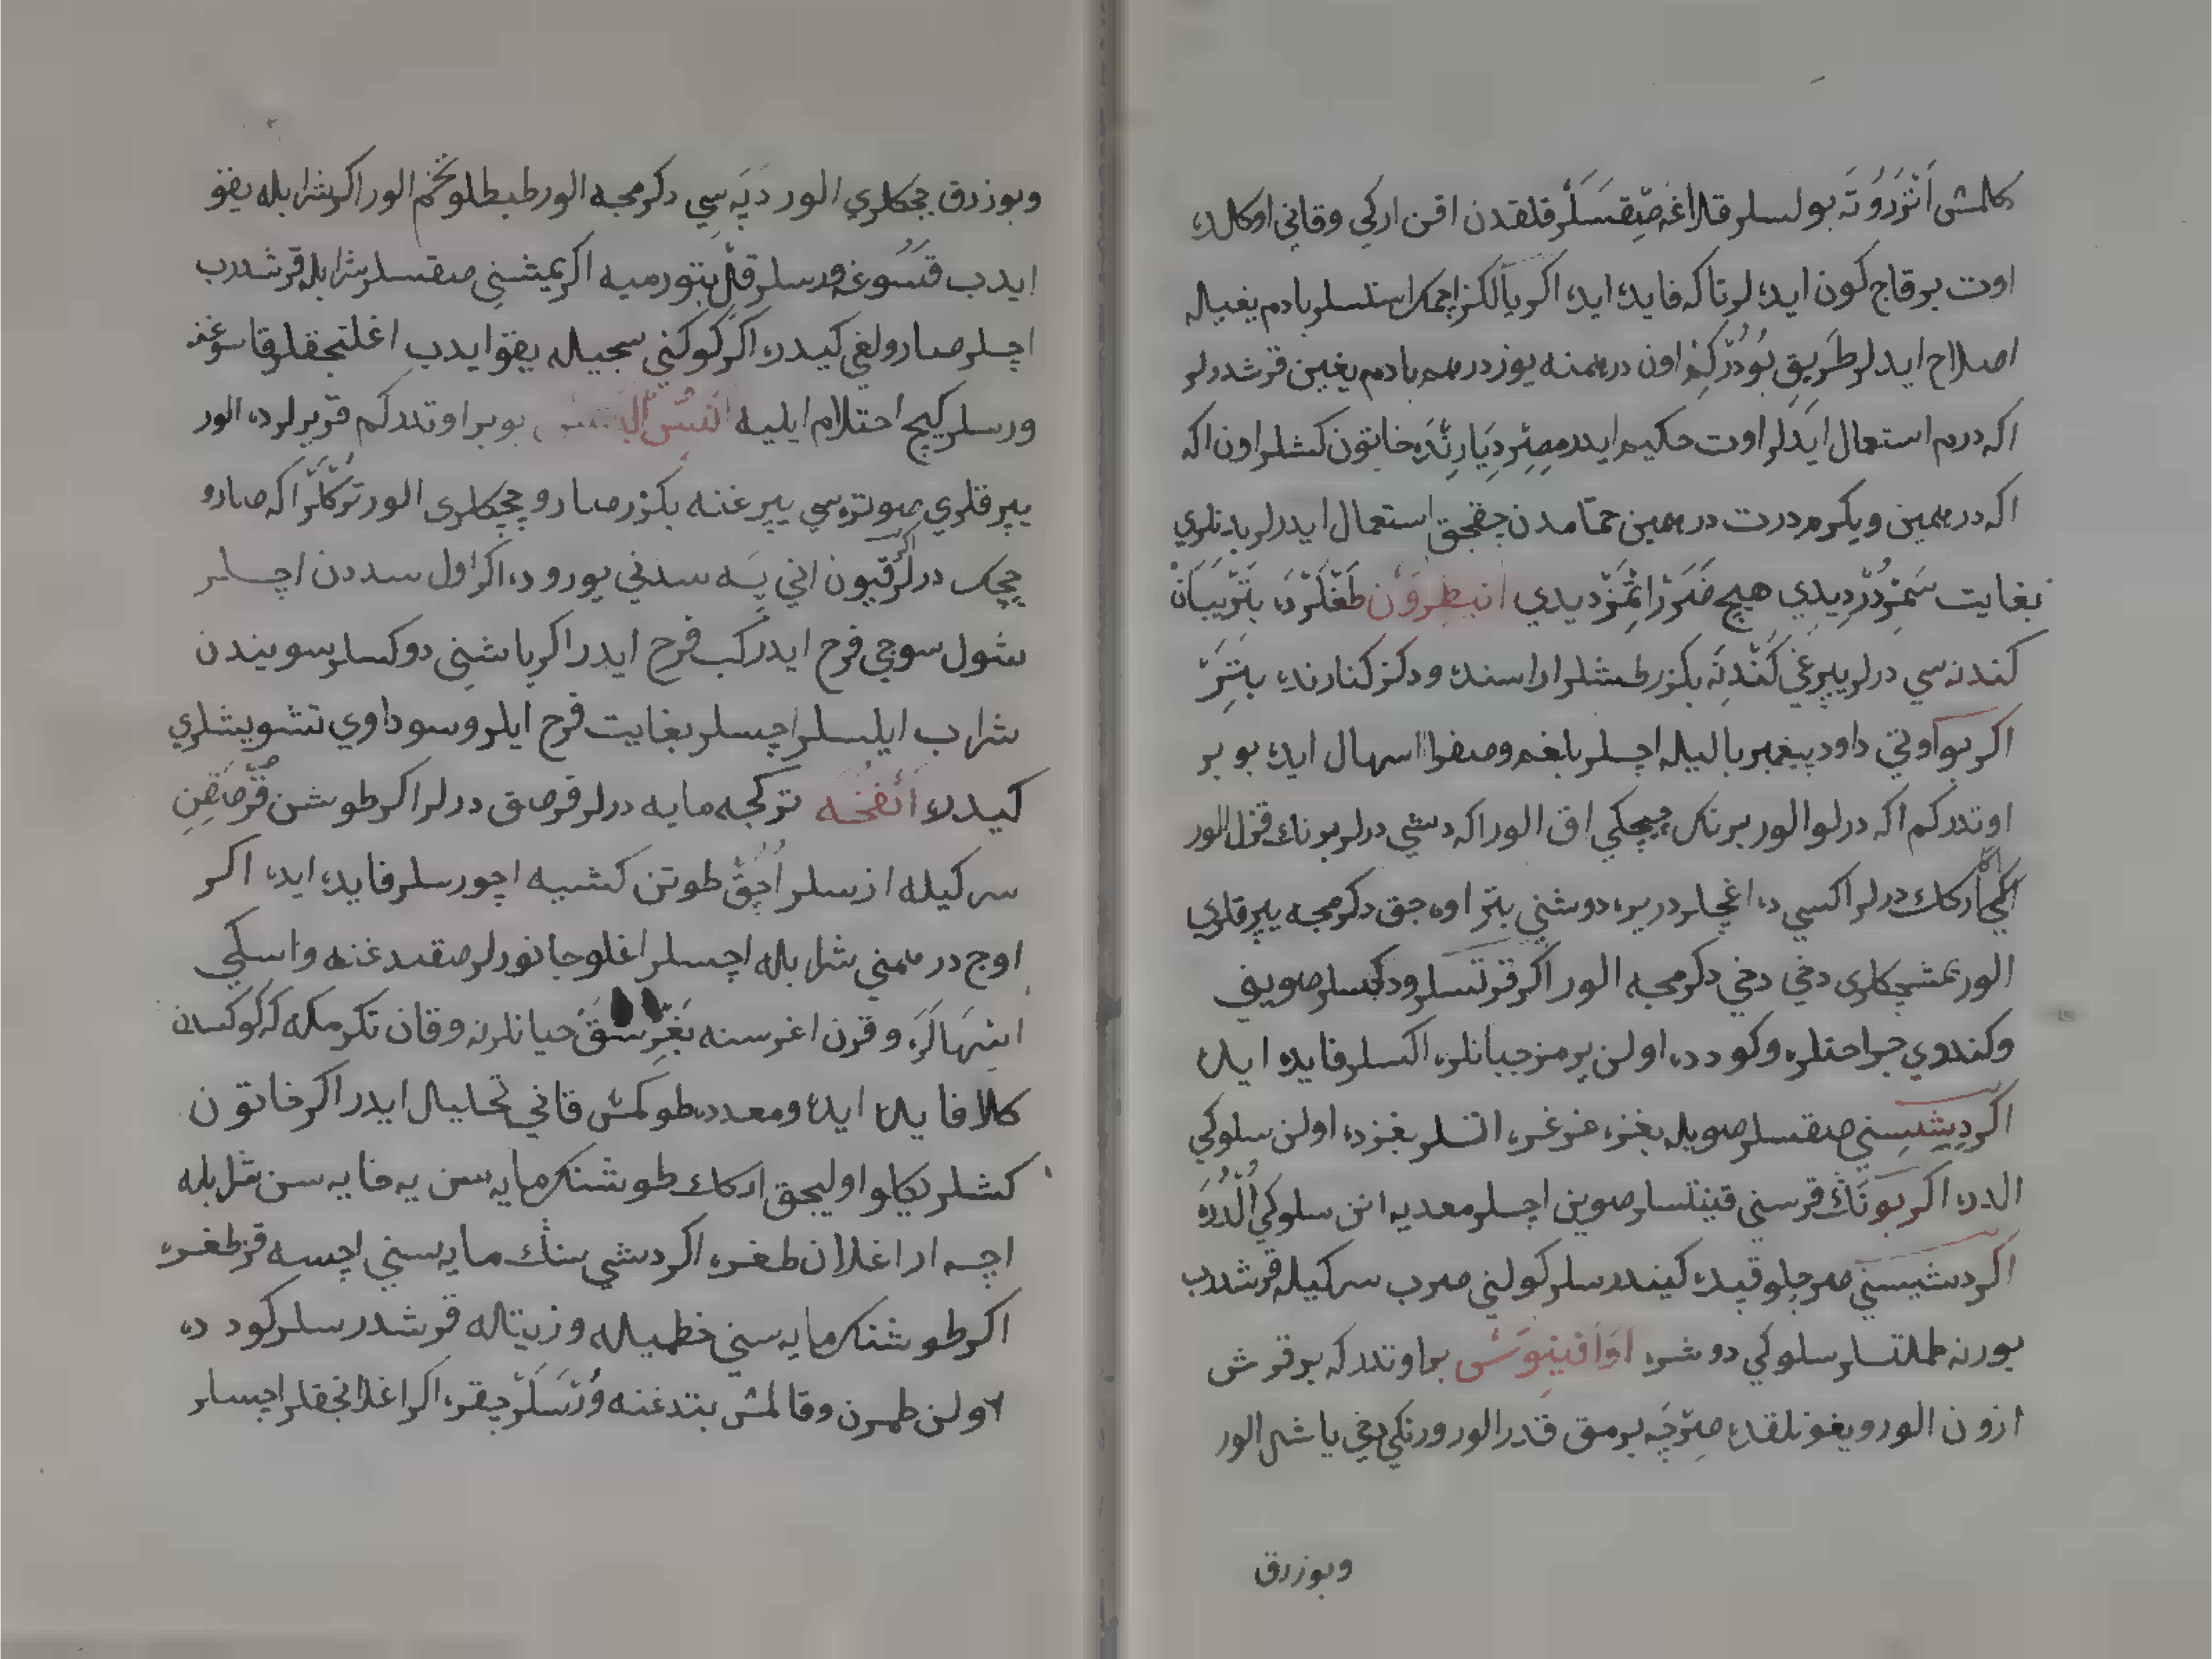 كلمش اَنْزَرُوتَه بولسلر قلاغه صِقسَلَر قلقدن اقن اركي وقاني اوكالده
اوت برقاج كون ايده لر تاكه فايده ايده اكر يالكز اچمك استسلر بادم يغيله
اصلاح ايدلر طَرِيقِ بُودُرْكِمْ اون درهمنه يوز درهم بادم يغين قرشدرلر
اكه درم استعمال ايدَلَر اوت حكيم ايدر مِصِرْ دِيَارِنْدَه خاتون كشلر اون اكه
اكه درهمين ويكرم درت درهمين حمامدن چقجق استعمال ايدرلر بدنلري
بغايت سَمِرُدُرْ ديدي هيچ ضَرَرْ اتْمَزْ ديدي انبطِرَوُن طَغْلَرْدَه بَتَرْ يَبَانْ
كندنه سي درلر يپرغي كَنْدنَه بكزر طشلر اراسنده ودكز كنارنده بِتَرْ
اكر بو اوتي داود پيغمبر باليله اچسلر بلغم وصفرا اسهال ايده بو بر
اوتدركم اكه درلو الور برنك چچكي اق الور اكه دشي درلر برنك قزل الور
اكا اركك درلر اكسي ده اغچلر دربره دوشني بتر اوه جق دكرمجه يپرقلري
الور يمشجكلري دخي دكرمجه الور اكر قرتسلر ودكسلر صويني
وكندوي جراحتلره وكودده اولن پرمز جبانلره اكسلر فايده ايده
اكر دِيشِسِني صقسلر صويله بغزه غرغره اتسلر بغزده اولن سلوكي
الدره اكر بونَكْ قرسني قينتسلر صوين اچسلر معديه انن سلوكي اُلْدُرَه
اكر دشيسني صرچلو قپده كيندرسلر كولني صرب سركيله قرشدرب
بورنه طملتسلر سلوكي دوشره اوَافينِوَس بر اوتدركه بر قرش
ازون الور ويغونلقده صِرْچَه برمق قدر الور ورنكي دخي ياشل الور
وبوزرق
وبوزرق چچكلري الور دپَه سِي دكرمجه الور طبطلو تخم الور اكر شرابله يقو
ايدب قَسُوغه ورسلر قل بتورميه اكر يمشني صقسلر شرابله قرشدرب
اچسلر صارولغي كيدره اكر كوكني سجيله يقو ايدب اغلنجقلر قاسوغنه
ورسلر كيچ احتلام ايليه بو بر اوتدركم قريرلرده الور
يپرقلري صوتره سي يپرغنه بكزر صارو چچكلري الور تُركْلَرْ اكه صارو
چچك درلر اكر قيون اني يَسَه سدني يورودهاكر اول سددن اچسلر
شول سوجي فرح ايدر كب فرح ايدر اكر ياشني دوكسلر سويندن
شراب ايلسلر اچسلر بغايت فرح ايلر وسوداوي تشويشلري
كيدره اَنفخَه تركجه مايه درلر قرصق درلر اكر طوشن قُرْصَقِن
سركيله ازسلر اُچُقْ طوتن كشيه اچورسلر فايده ايده اكر
اوچ درهمني شرابله اچسلر اغلو جانورلر صقدغنه واسكي
اسْهَالَرَه وقرن اغرسنه بَغِرْسَقَ حيانلرنه وقان تكرمكه كه كوكسدن
كلا فايده ايده ومعدده طوكمش قاني تحليل ايدر اكر خاتون
كشلر يكلو اوليجق اركك طوشنك مايه سن يه خايه سن شرابله
اچسه ار اغلان طغره اكر دشي سنك مايه سني اچسه قز طغره
اكر طوشنك مايه سني خطميله وزيتله قرشدرسلر كودده
اولن طمرن وقالمش بتدغنه وُرْسَلَرْ چقره اكر اغلانجقلر اچسلر